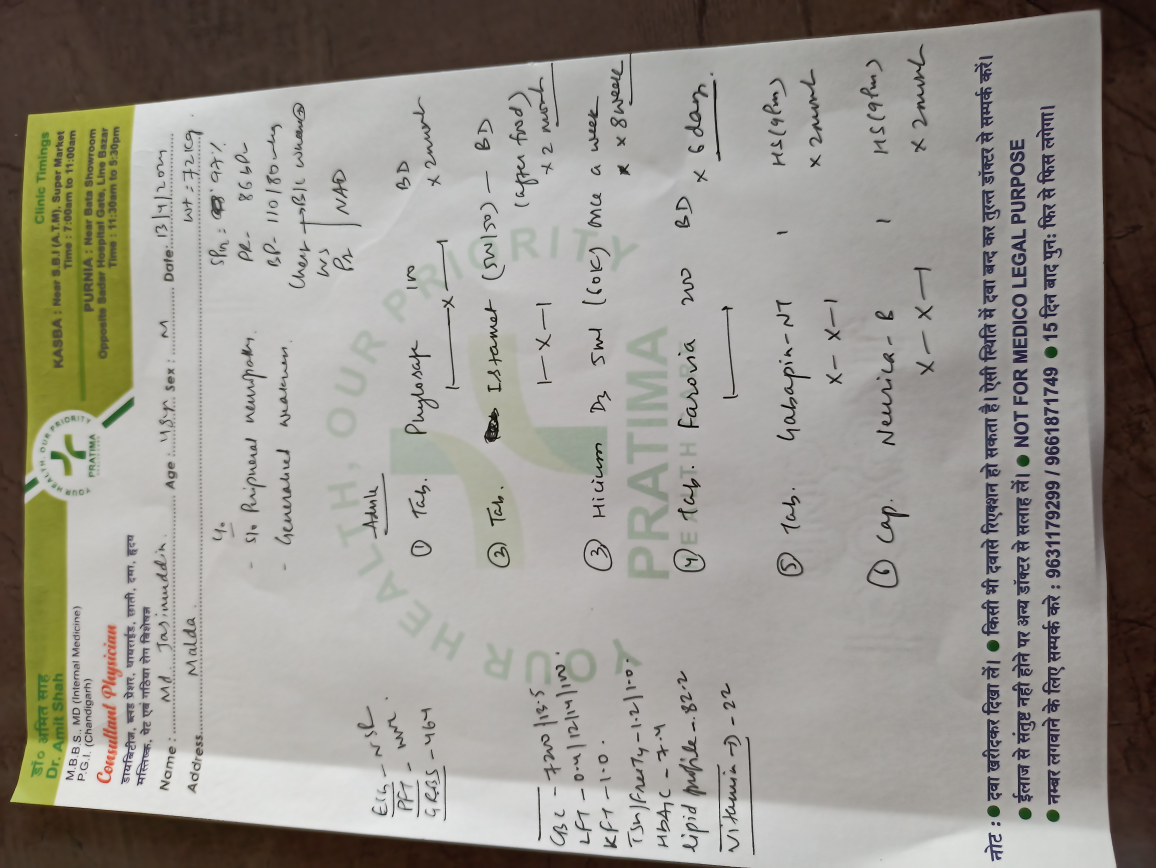 डॉ० अमित साह
Dr. Amit Shah
M.B.B.S., MD (Internal Medicine)
P.G.I. (Chandigarh)
Consultant Physician
डायबिटीज, ब्लड प्रेशर, थायराईड, छाती, दमा, हृदय
मस्तिष्क, पेट एवं गठिया रोग विशेषज्ञ
YOUR HEALTH, OUR PRIORITY
PRATIMA
Clinic Timings
KASBA : Near S.B.I (A.T.M), Super Market
Time : 7:00am to 11:00am
PURNIA : Near Bata Showroom
Opposite Sadar Hospital Gate, Line Bazar
Time : 11:30am to 5:30pm
Name : Md Jasimuddin. Age : 48yr Sex : M Date: 13/4/2024
Address Malda. Wt = 72 kg.
C/o
- S/o Peripheral neuropathy.
- Generalised weakness.
SPo2 : 97%
PR - 86 bpm
BP - 110/80 mmHg
Chest → B/L
CVS
PA NAD
ECG - NSR
PFT -
GRBS - 464
CBC - 7200/13.5
LFT - 0.4/12/14/100
KFT - 1.0.
TSH/Free T4 - 1.2/1.0.
HbA1C - 7.4
Lipid profile - 82.2
Vitamin D - 22
Advice
① Tab. Phylosafe 100 BD
1—x—1 x 2 month
② Tab. Istamet (50/500) — BD
1—x—1 (after food)
x 2 month
③ Hicium D3 5ml (60K) once a week
x 8 week
④ Tab. Farovia 200 BD
x 6 days.
⑤ Tab. Gabapin-NT 1 HS (9pm)
x—x—1 x 2 month
⑥ Cap. Neurica-B 1 HS (9pm)
x—x—1 x 2 month
YOUR HEALTH, OUR PRIORITY
PRATIMA
HEALTH
नोट : ● दवा खरीदकर दिखा लें। ● किसी भी दवासे रिएक्शन हो सकता है। ऐसी स्थिति में दवा बन्द कर तुरन्त डॉक्टर से सम्पर्क करें।
● ईलाज से संतुष्ट नही होने पर अन्य डॉक्टर से सलाह लें। ● NOT FOR MEDICO LEGAL PURPOSE
● नम्बर लगवाने के लिए सम्पर्क करे : 9631179299 / 9661871749 ● 15 दिन बाद पुन: फिर से फिस लगेगा।